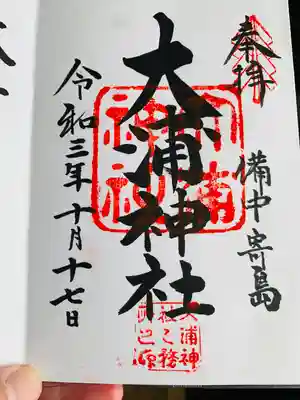 奉拝
備中寄島
大浦神社
令和三年十月十七日
大浦神社
大浦神
社之務
所之印